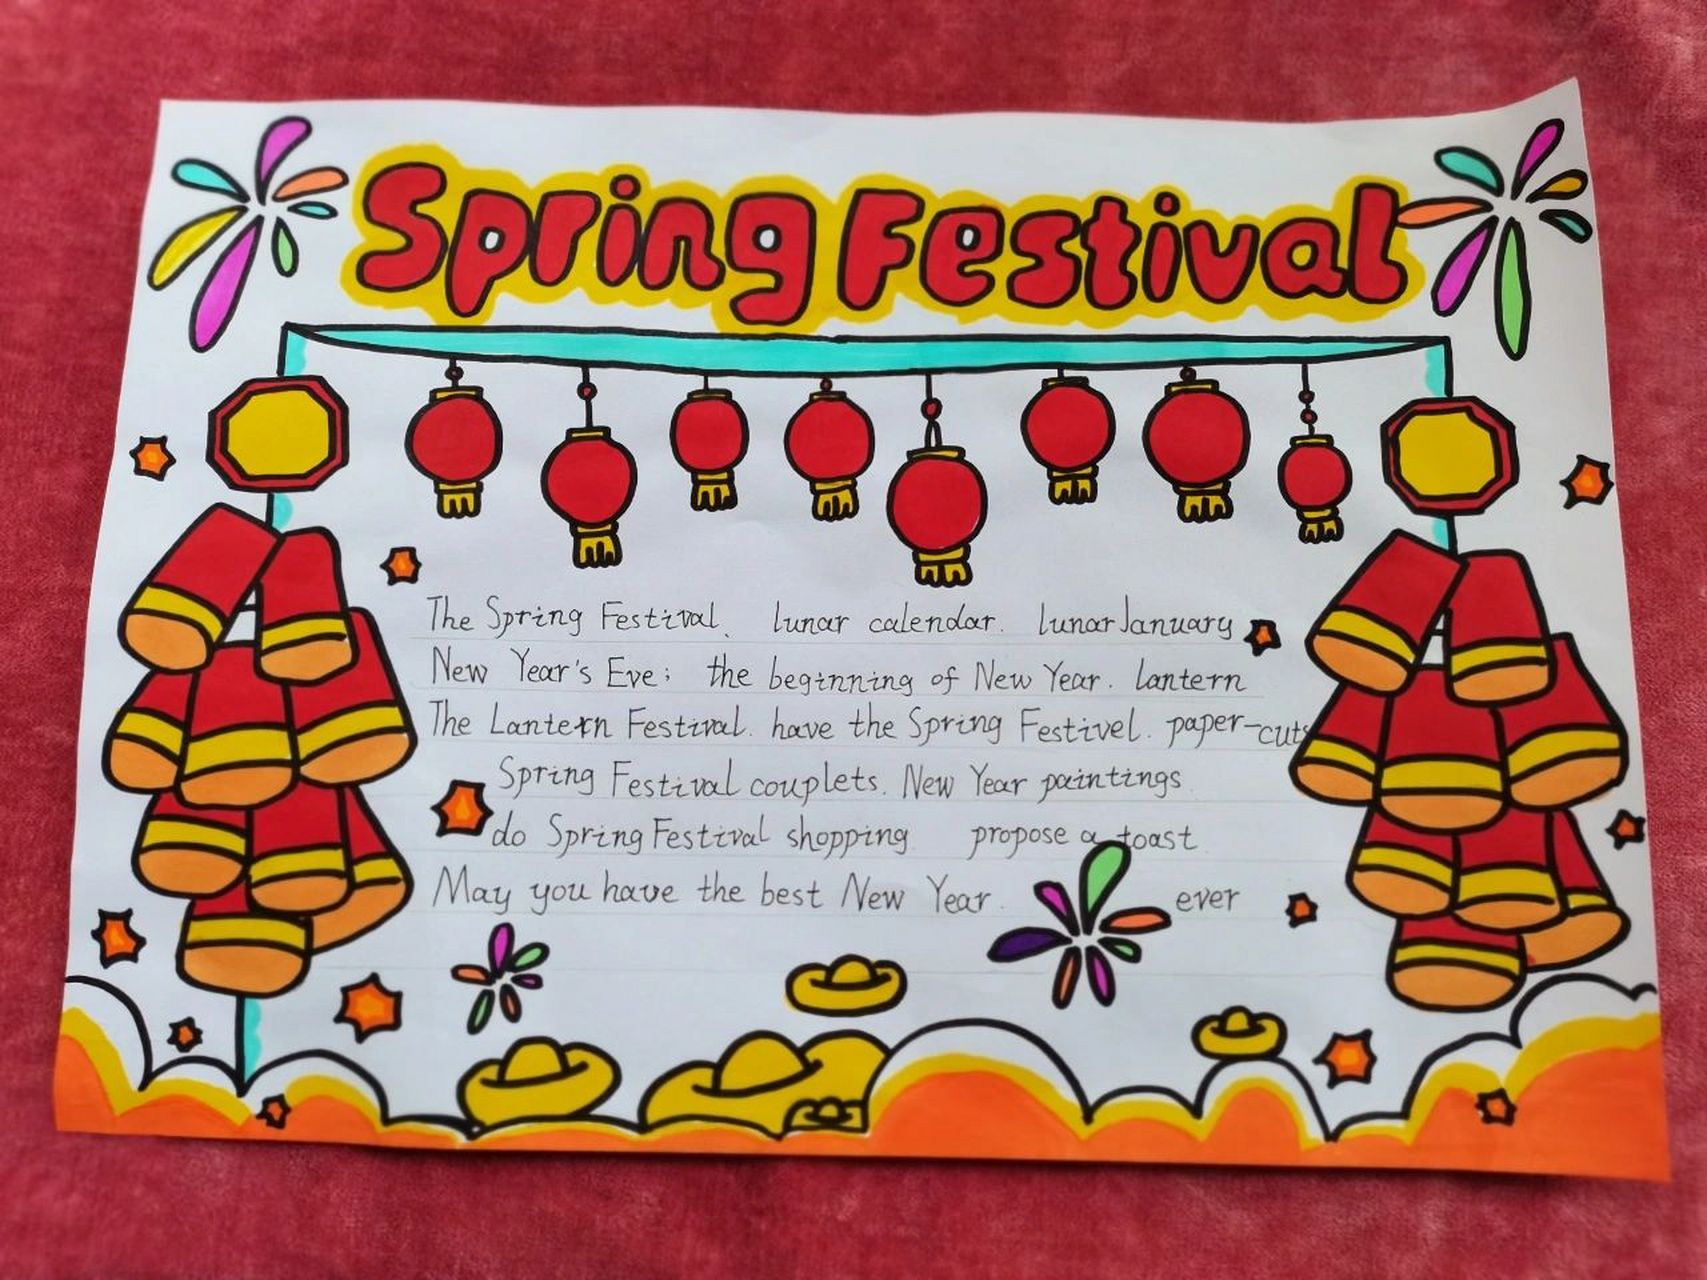 Spring Festival
The Spring Festival. lunar calendar. lunar January
New Year's Eve; the beginning of New Year. lantern
The Lantern Festival. have the Spring Festivel. paper-cuts
Spring Festival couplets. New Year paintings.
do Spring Festival shopping. propose a toast.
May you have the best New Year. ever